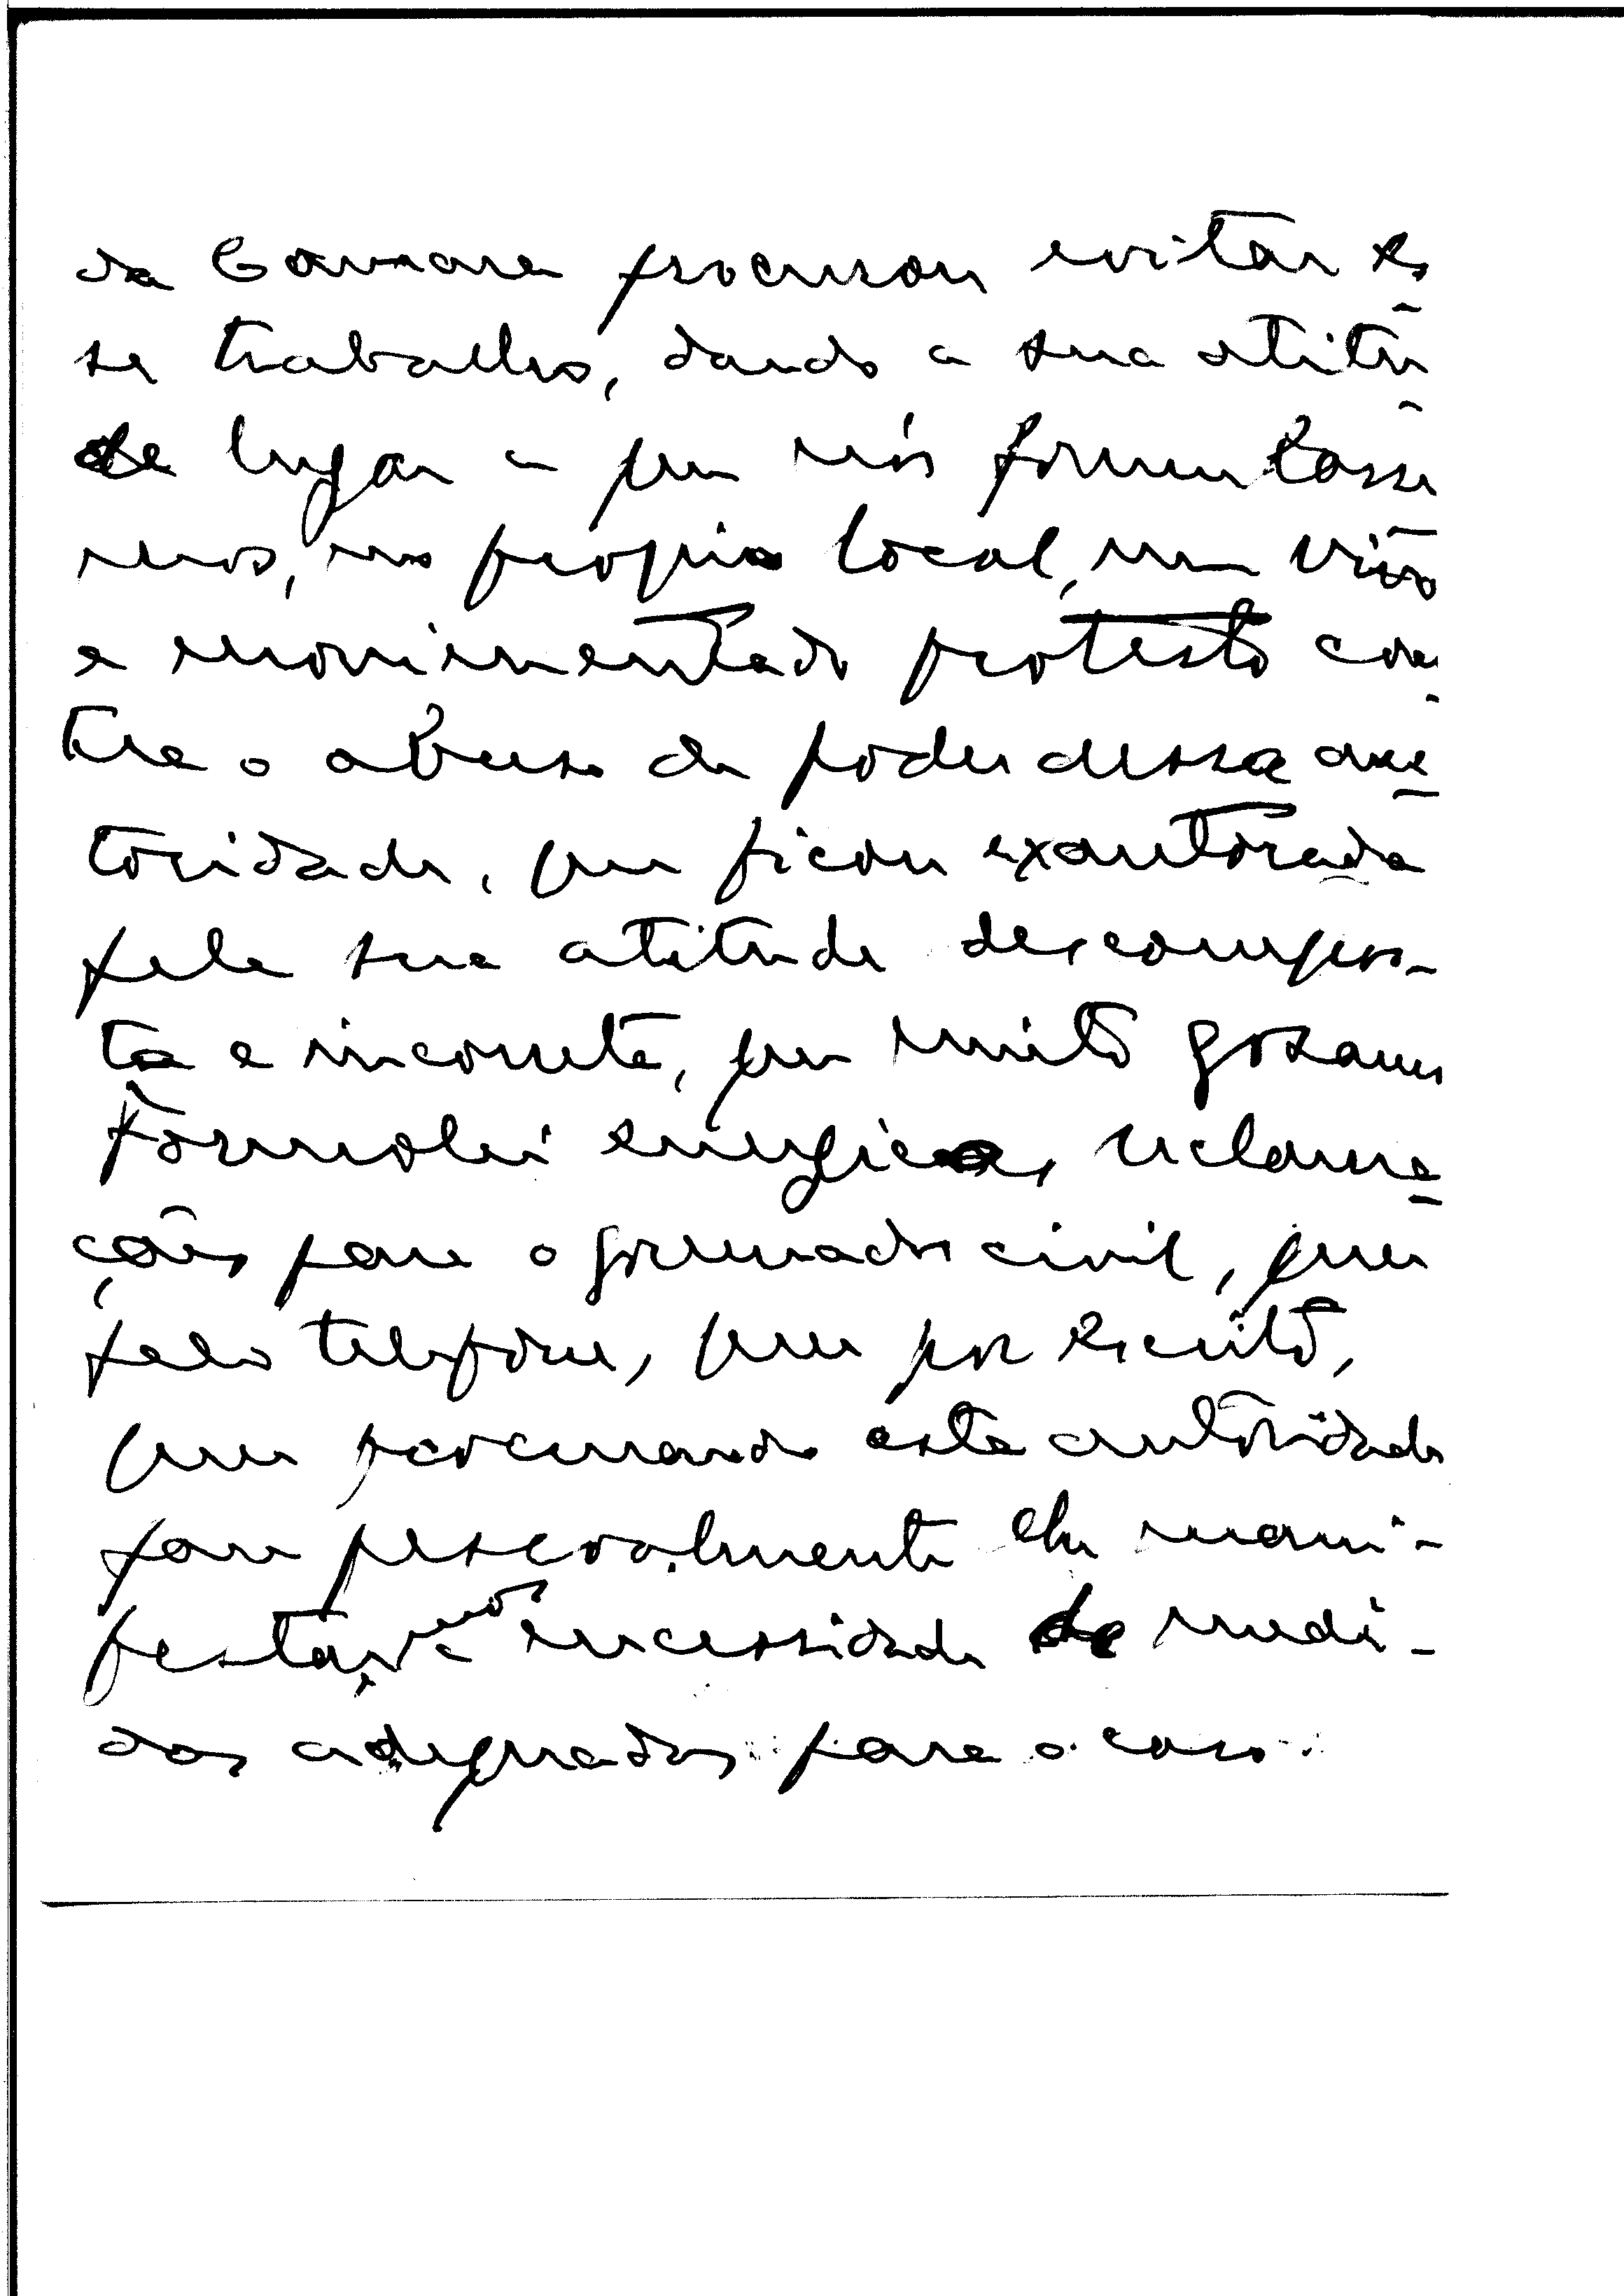 da Camara procurou evitar es
se trabalho, dando a sua atitu
de lugar a que nós fomentasse
mos, no proprio local, um vivo
e movimentado protesto con
tra o abuso de poder dessa au
toridade, que ficou exautorada
pela sua atitude descompos-
ta e incorreta, que muito gosamos
Formolei energicas reclama
ções para o governador civil, quer
pelo telefone, quer por escrito,
quer procurando esta autoridade
para pessoalmente lhe mani-
festarmos a necessidade de medi-
das adequadas para o caso.